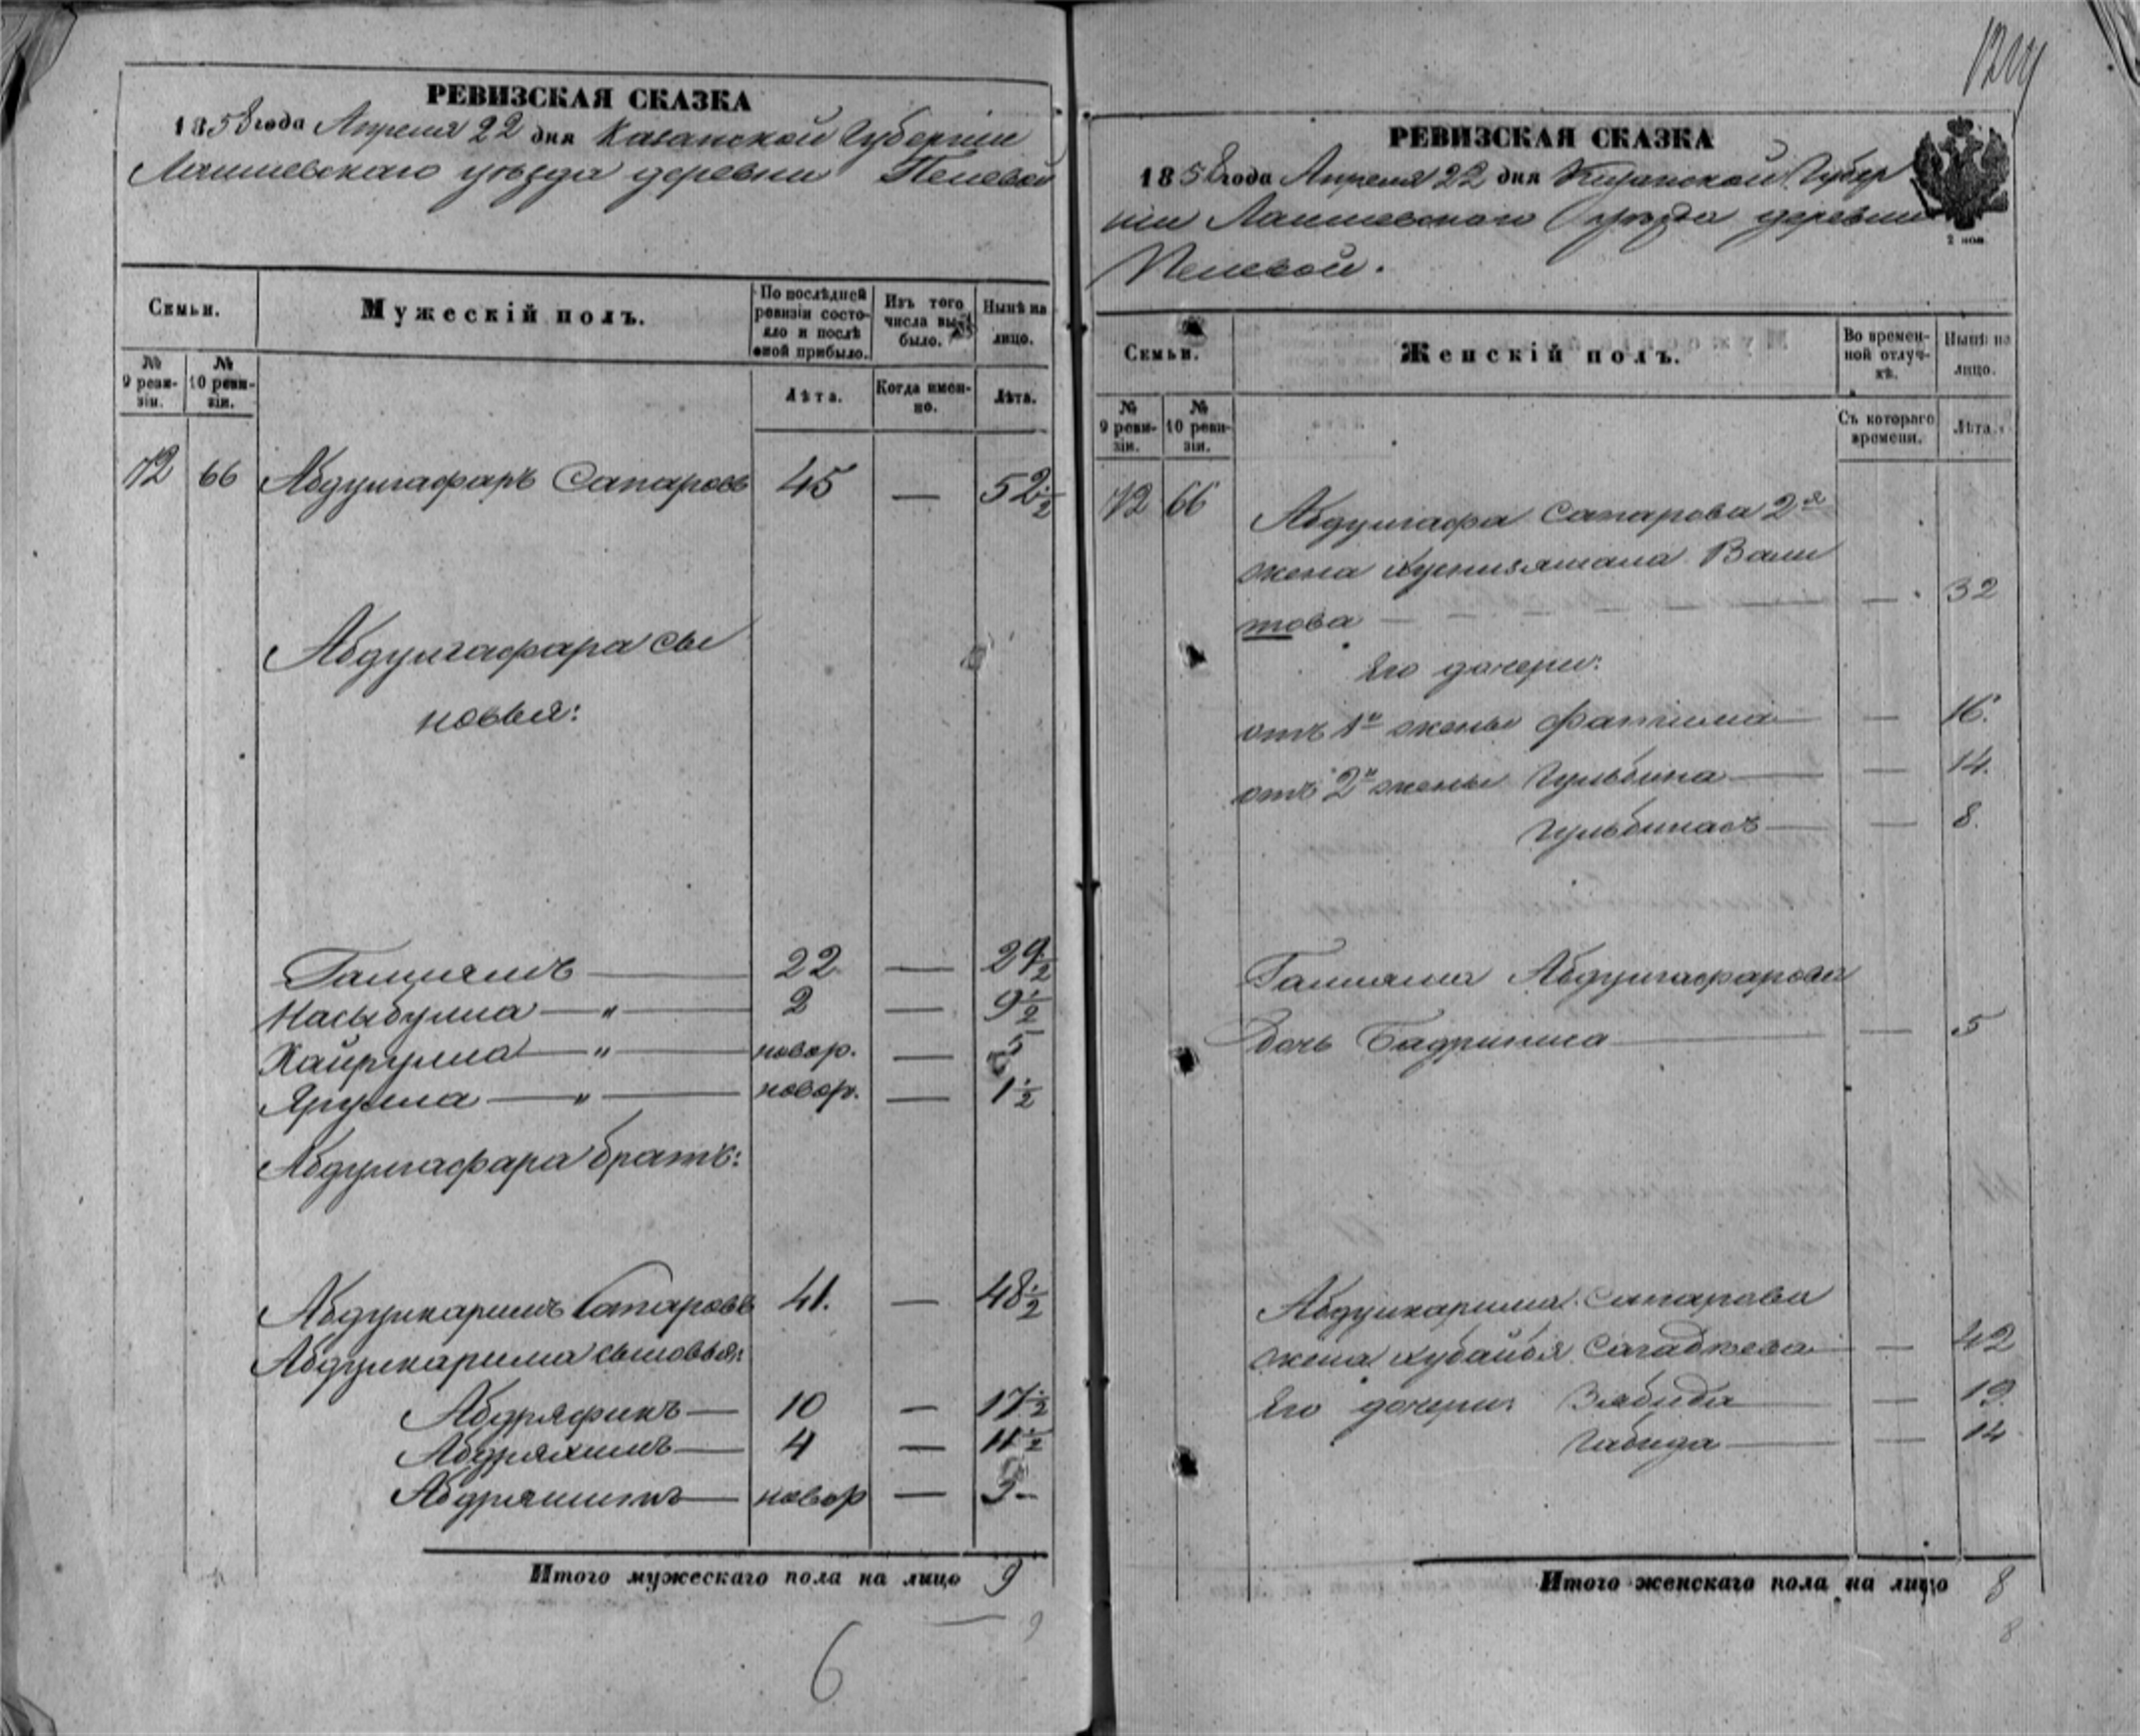 РЕВИЗСКАЯ СКАЗКА
1858 года Апреля 22 дня Казанской Губернии
Лаишевскаго уѣзда деревни
Семьи.
Мужескій полъ.
По послѣдней ревизіи состояло и послѣ оной прибыло.
Изъ того числа выбыло.
Нынѣ на лицо.
№ 9 ревизіи.
№ 10 ревизіи.
Лѣта.
Когда именно.
Лѣта.
72 66 Абдулгафаръ Сапаровъ 45 — 52½
Абдулгафара сы
новья:
22 — 29½
Насыбулла — " — 2 — 9½
Хайрулла — " — новор. — 5
Ярулла — " — новор. — 1½
Абдулгафара братъ:
Абдулкаримъ Сапаровъ 41. — 48½
Абдулкарима сыновья:
Абдряфикъ — 10 — 17½
Абдряхимъ — 4 — 11½
Абдряшитъ — новор —
Итого мужескаго пола на лицо 9
9
6
РЕВИЗСКАЯ СКАЗКА
1858 года Апреля 22 дня Казанской Губер
ніи Лаишевскаго Уѣзда деревни
2 коп.
Семьи.
Женскій полъ.
Во временной отлучкѣ.
Нынѣ на лицо.
№ 9 ревизіи.
№ 10 ревизіи.
Съ котораго времени.
Лѣта.
72 66 Абдулгафа Сапарова 2я
жена
това — — 32
Его дочери:
отъ 1й жены Фатима — — 16.
отъ 2й жены — 14.
Гульбинасъ — — 8.
Абдулгафарова
дочь — — 5
Абдулкарима Сапарова
жена Хубайбя — 42
Его дочери: Зябида — — 19.
Габида — — 14
Итого женскаго пола на лицо 8
8